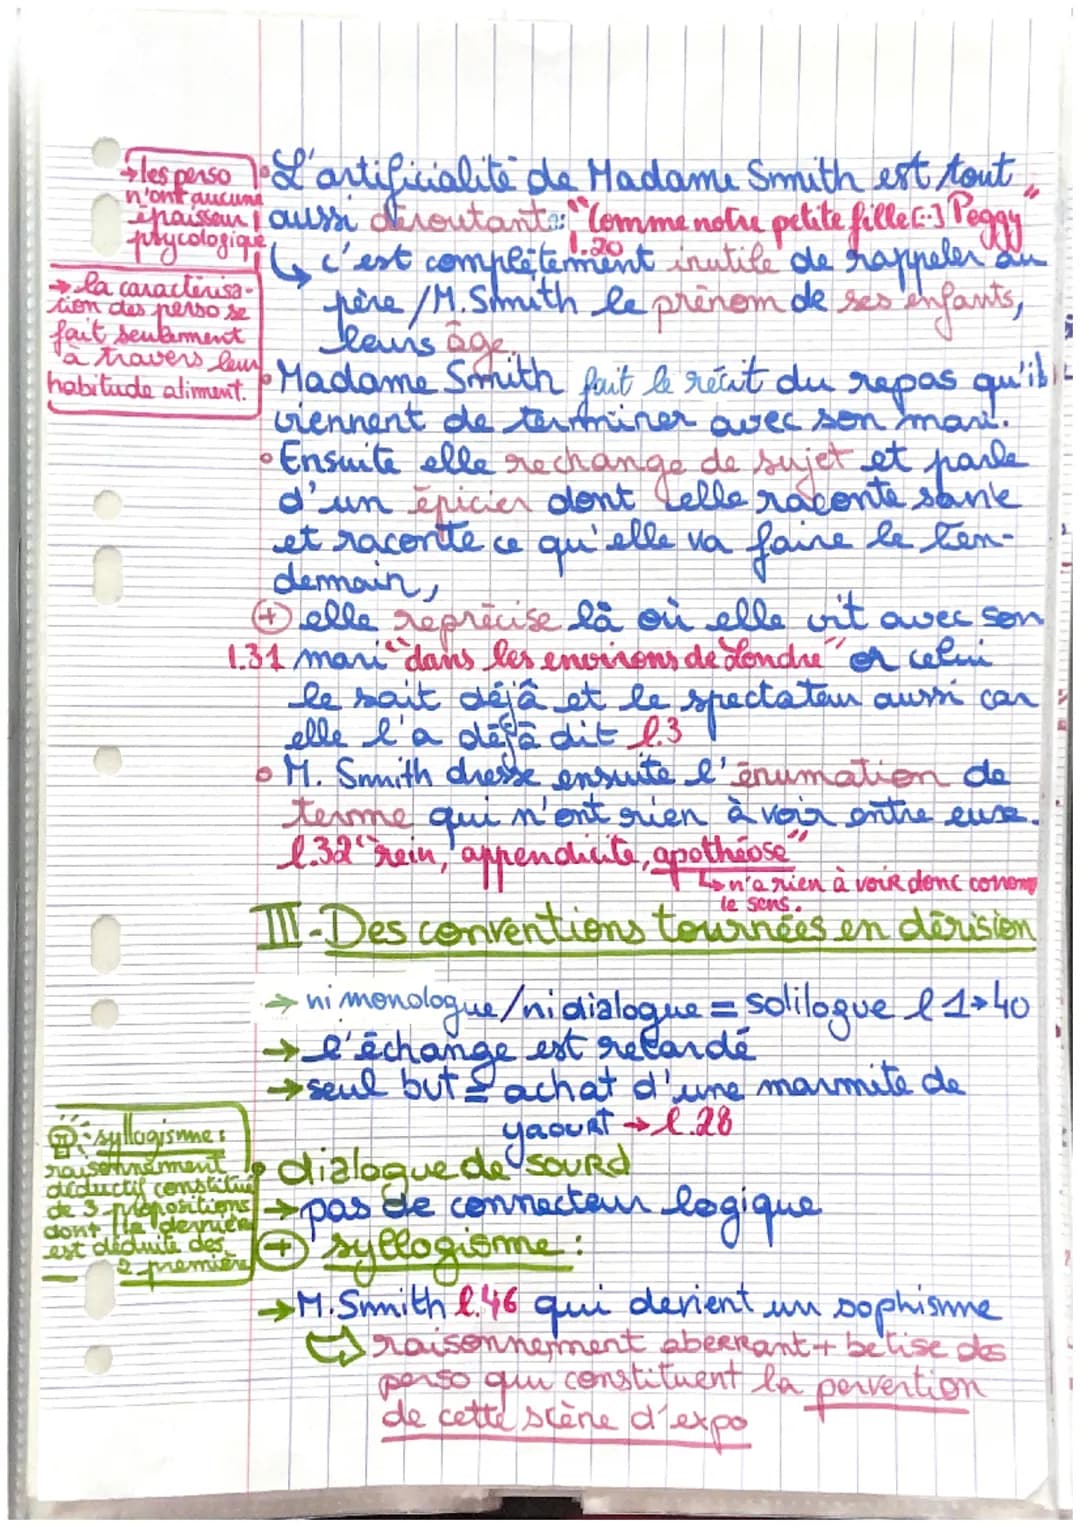 → les perso
n'ont aucune
épaisseur
psycologique
→ la caractérisa-
tion des perso se
fait seulement
à travers leur
habitude aliment.
• L'artificialité de Madame Smith est tout
aussi déroutante: "Comme notre petite fille [...] Peggy"
l.20
↳ c'est complètement inutile de rappeler au
père / M. Smith le prénom de ses enfants,
leurs âge.
• Madame Smith fait le récit du repas qu'ils
viennent de terminer avec son mari.
• Ensuite elle rechange de sujet et parle
d'un épicier dont elle raconte sa vie
et raconte ce qu'elle va faire le len-
demain,
(+) elle reprécise là où elle vit avec son
l.31 mari "dans les environs de Londre" or celui
le sait déjà et le spectateur aussi car
elle l'a déjà dit l.3
• M. Smith dresse ensuite l'énumation de
terme qui n'ont rien à voir entre eux.
l.32 "rein, appendicite, apothéose"
↳ n'a rien à voir donc
le sens.
III - Des conventions tournées en dérision
→ ni monologue / ni dialogue = solilogue l 1→40
→ l'échange est retardé
→ seul but = achat d'une marmite de
yaourt → l.28
• dialogue de sourd
→ pas de connecteur logique
(+) syllogisme :
syllogisme :
raisonnement
déductif constitué
de 3 propositions
dont la dernière
est déduite des
2 première
→ M. Smith l.46 qui devient un sophisme
↳ raisonnement aberrant + betise des
perso qui constituent la pervention
de cette scène d'expo